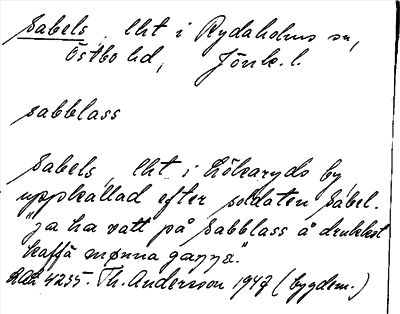 Sabels, lht i Rydaholms sn,
Östbo hd, Jönk. l.
sabblass
Sabels, lht i Hökaryds by
uppkallad efter soldaten Sabel.
"Ja ha vatt på Sabblass å drukket
kaffä månna ganna."
4235. Th. Andersson 1947 (bygdem.)